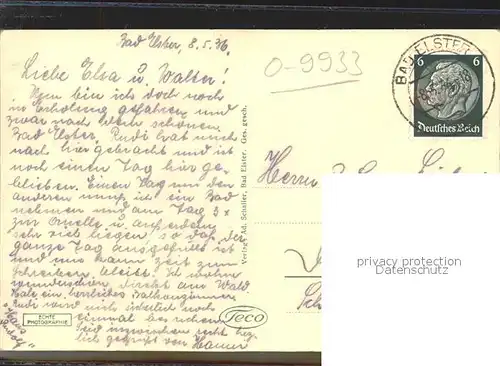 Bad Elster, 8.5.36.
Liebe Elsa u. Walter!
Nun bin ich doch noch
in Erholung gefahren und
zwar nach dem schönen
Bad Elster. Rudi hat mich
nach hier gebracht und ist
noch einen Tag hier ge-
blieben. Einen Tag um den
anderen muß ich ein Bad
nehmen und am Tag 3 x
zur Quelle u. außerdem
sehr viel liegen, so daß der
ganze Tag ausgefüllt ist
und uns kaum Zeit zum
Schreiben bleibt. Ich wohne
wunderschön direkt am Wald
Habe ein herrliches Balkonzimmer
Rudi wird mich sicherlich noch
einmal besuchen.
Seid inzwischen recht herz-
lich gegrüßt von
"Haus
ECHTE
PHOTOGRAPHIE
Teco
Verlag Ad. Schaller, Bad Elster. Ges. gesch.
0-9933
BAD ELSTER
6 6
Deutsches Reich
Herrn
protected by copyright
Datenschutz